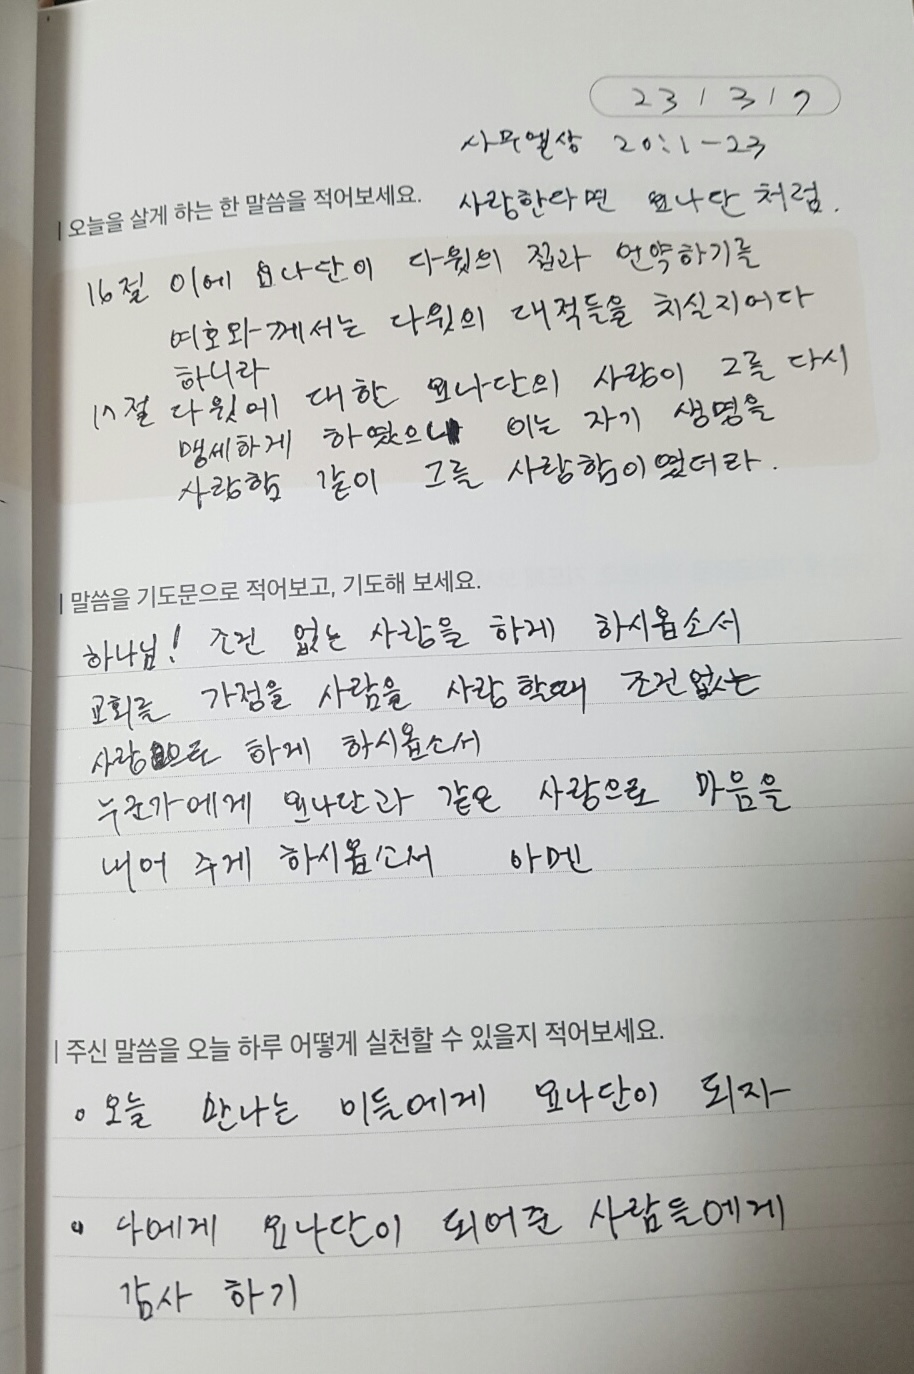 23 / 3 / 7
사무엘상 20:1-23
| 오늘을 살게 하는 한 말씀을 적어보세요. 사랑한다면 요나단처럼.
16절 이에 요나단이 다윗의 집과 언약하기를
여호와께서는 다윗의 대적들을 치실지어다
하니라
17절 다윗에 대한 요나단의 사랑이 그를 다시
맹세하게 하였으니 이는 자기 생명을
사랑함 같이 그를 사랑함이였더라.
| 말씀을 기도문으로 적어보고, 기도해 보세요.
하나님! 조건 없는 사랑을 하게 하시옵소서
교회를 가정을 사람을 사랑할때 조건없는
사랑으로 하게 하시옵소서
누군가에게 요나단과 같은 사랑으로 마음을
내어 주게 하시옵소서 아멘
| 주신 말씀을 오늘 하루 어떻게 실천할 수 있을지 적어보세요.
o 오늘 만나는 이들에게 요나단이 되자
o 나에게 요나단이 되어준 사람들에게
감사 하기